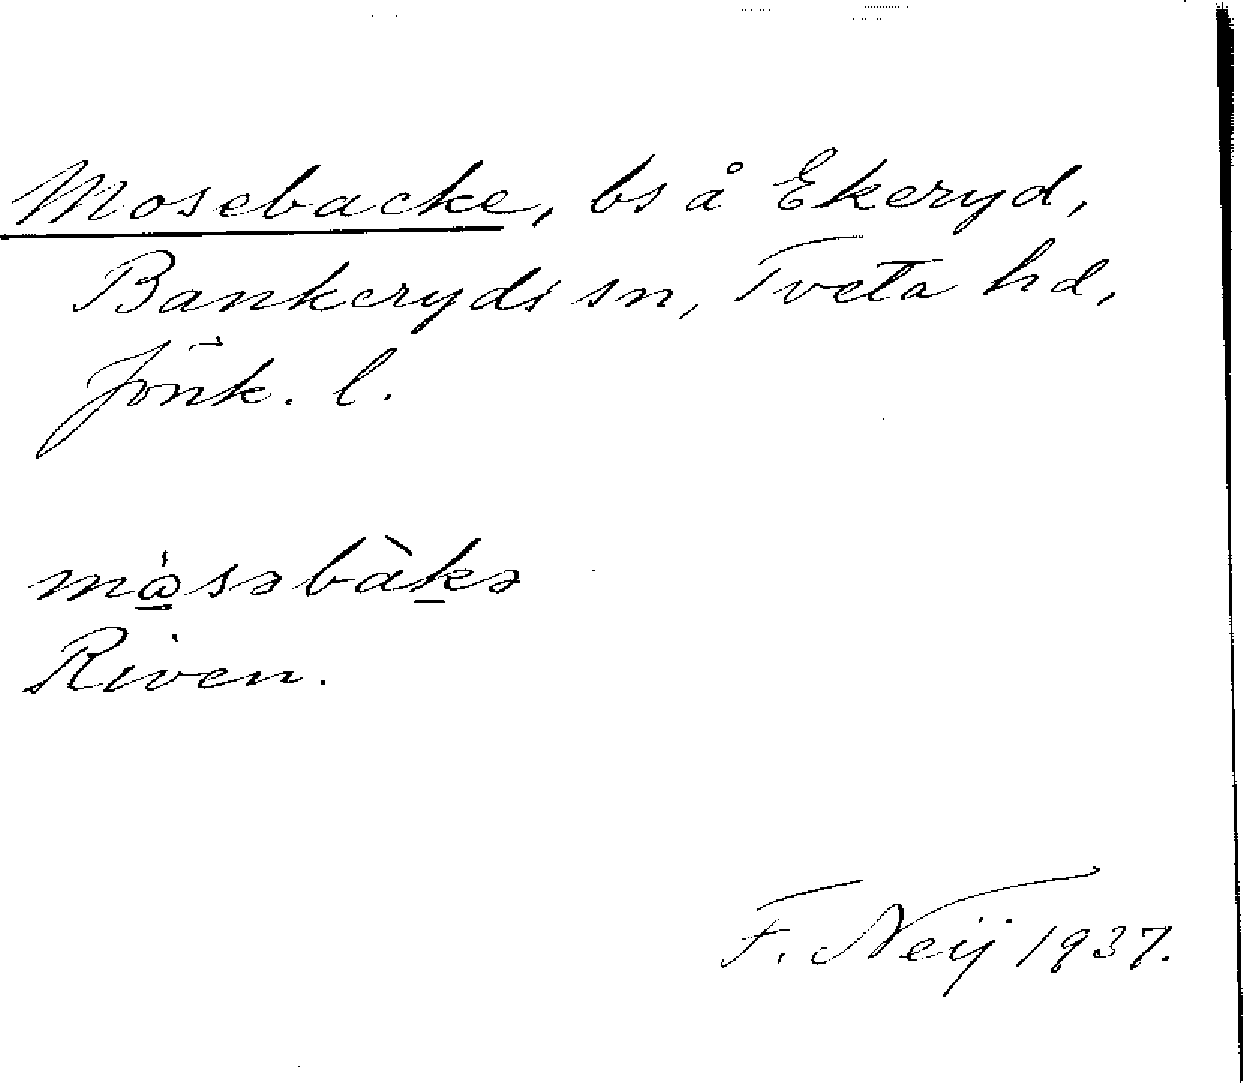 Mosebacke, bs å Ekeryd,
Bankeryds sn, Tveta hd,
Jönk. l.
mòsəbàkə
Riven.
F. Neij 1937.